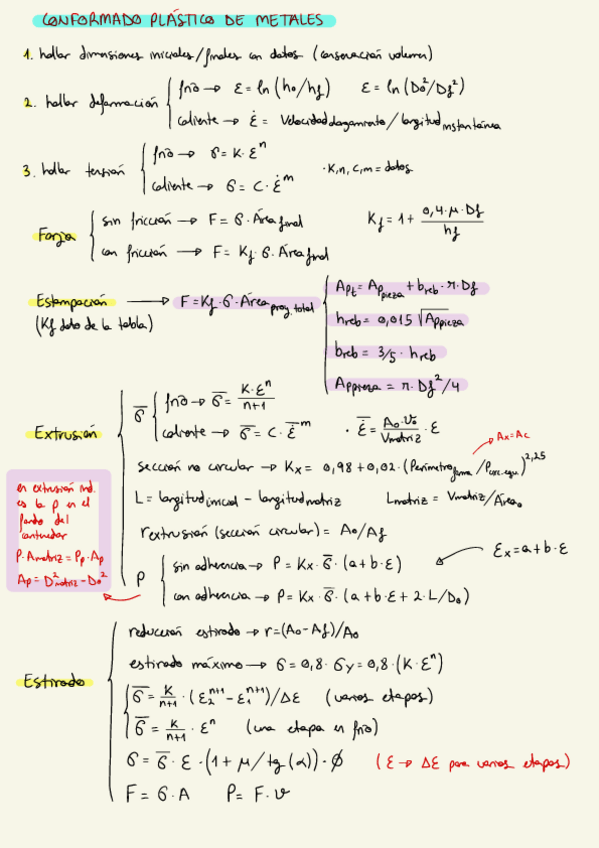 CONFORMADO PLÁSTICO DE METALES
1. hallar dimensiones iniciales/finales con datos (conservación volumen)
2. hallar deformación
frío → ε = ln (h₀/hf)   ε = ln (D₀²/Df²)
caliente → ε̇ = Velocidad alargamiento / longitud instantánea
3. hallar tensión
frío → σ = K·εⁿ
caliente → σ = C·ε̇ᵐ
· K, n, C, m = datos
Forja
sin fricción → F = σ·Área final
con fricción → F = Kf·σ·Área final
Kf = 1 + 0,4·μ·Df / hf
Estampación → F = Kf·σ·Área proy. total
(Kf dato de la tabla)
Apt = Ap pieza + breb·π·Df
hreb = 0,015 √Appieza
breb = 3/5 · hreb
Appieza = π·Df²/4
Extrusión
σ̅
frío → σ̅ = K·εⁿ / n+1
caliente → σ̅ = C·ε̅̇ᵐ   · ε̅̇ = A₀·V₀ / Vmatriz · ε
Ax = Ac
sección no circular → Kx = 0,98 + 0,02·(Perímetro forma / Pcirc. equ.)^2,25
L = longitud inicial − longitud matriz   Lmatriz = Vmatriz/Área₀
rextrusión (sección circular) = A₀/Af
P
sin adherencia → P = Kx·σ̅·(a+b·ε)
εx = a+b·ε
con adherencia → P = Kx·σ̅·(a+b·ε+2·L/D₀)
en extrusión ind.
es la p en el
fondo del
contenedor
P·Amatriz = Pp·Ap
Ap = D²matriz − D₀²
Estirado
reducción estirado → r = (A₀−Af)/A₀
estirado máximo → σ = 0,8·σy = 0,8·(K·εⁿ)
σ̅ = K/n+1 · (ε₂ⁿ⁺¹ − ε₁ⁿ⁺¹)/Δε   (varias etapas)
σ̅ = K/n+1 · εⁿ   (una etapa en frío)
σ = σ̅·ε·(1+μ/tg(α))·Ø   (ε → Δε para varias etapas)
F = σ·A   P = F·v